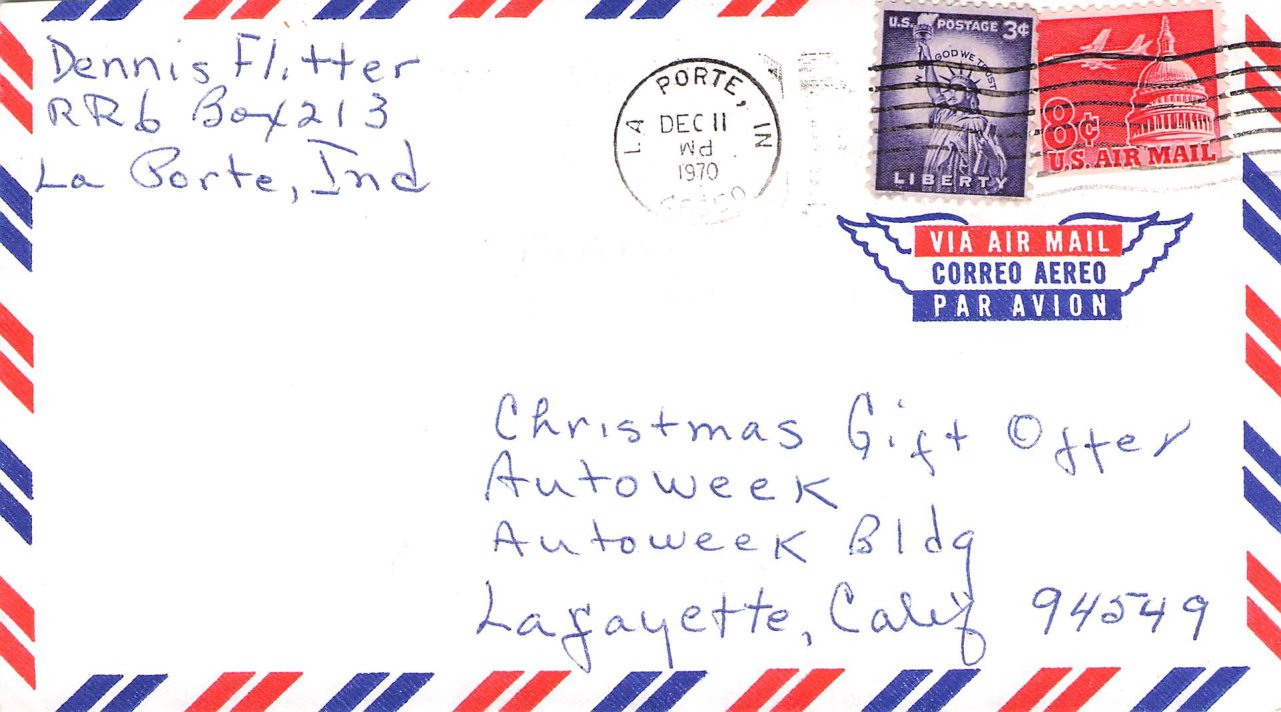 Dennis Flitter
RR6 Box 213
La Porte, Ind
LA PORTE, IN
DEC 11
PM
1970
U.S. POSTAGE 3¢
IN GOD WE TRUST
LIBERTY
8¢
U.S. AIR MAIL
VIA AIR MAIL
CORREO AEREO
PAR AVION
Christmas Gift Offer
Autoweek
Autoweek Bldg
Lafayette, Calif 94549